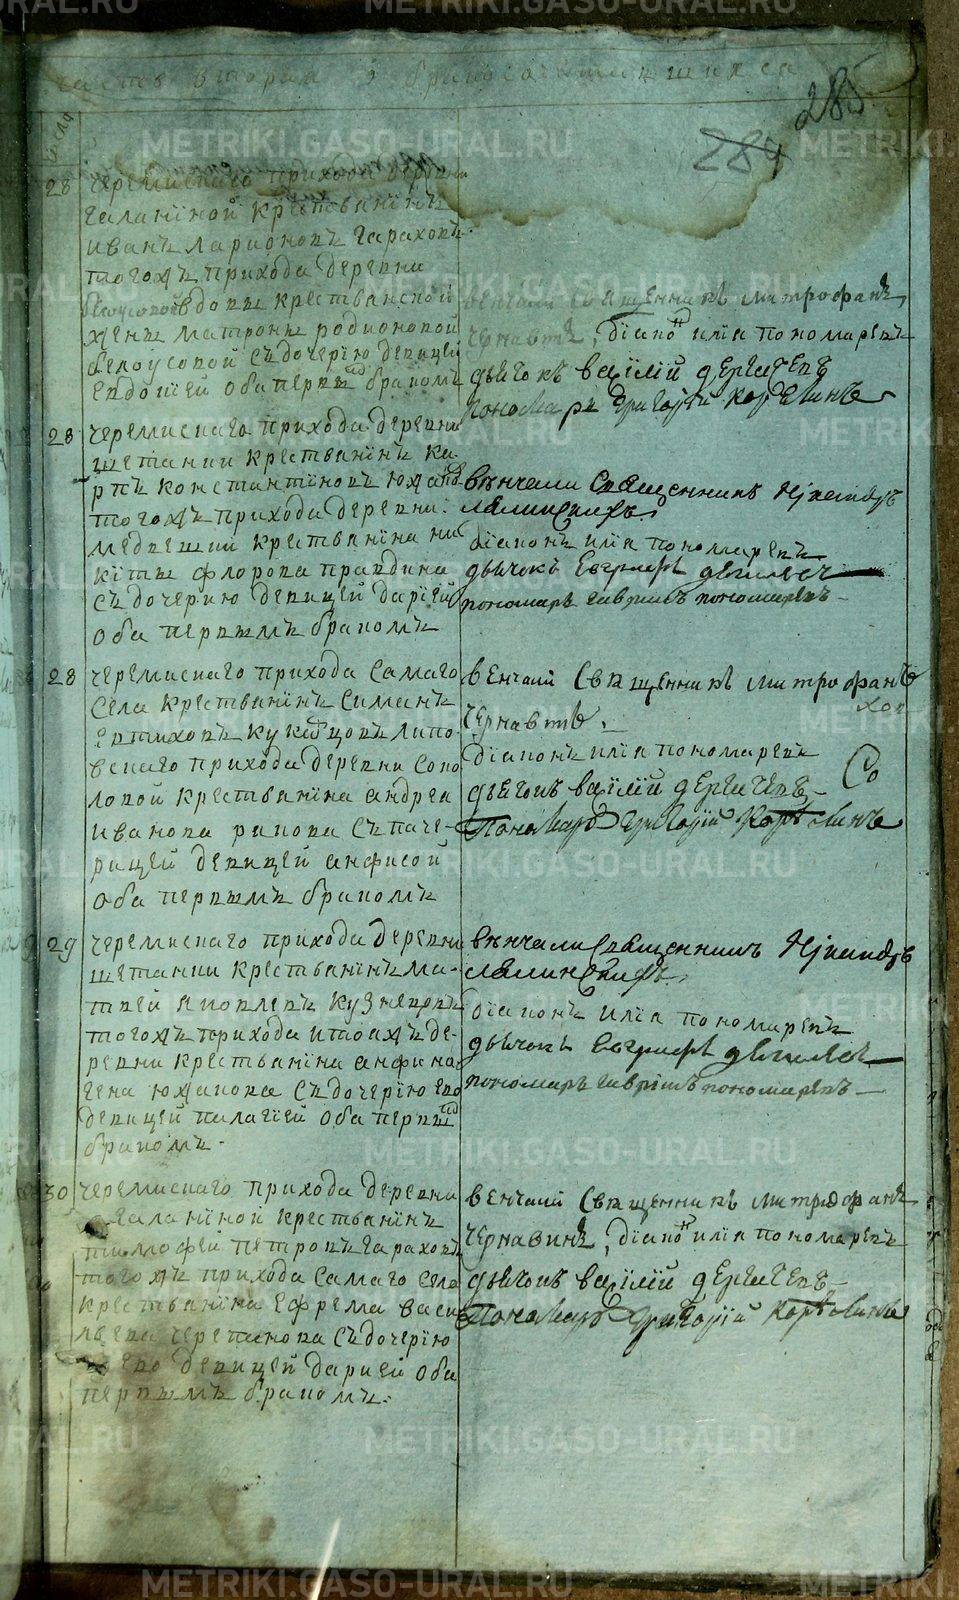 часть вторая о бракосочетавшихся
285
284
числа
28
черемискаго прихода деревни
галаниной крестьянинъ
иванъ ларионовъ гараховъ
тогожъ прихода деревни
белоусовой вдовы крестьянской
жены матроны родионовой
белоусовой съ дочерию девицей
евдокией оба первымъ бракомъ
венчали священникъ митрофанъ
чернавинъ, діаконъ илія пономаревъ
дьячокъ василій дергачевъ
пономарь григорій корелинъ
28
черемискаго прихода деревни
шетании крестьянинъ ка-
рпъ константиновъ южановъ
тогожъ прихода деревни
медведки крестьянина ни
киты флорова правдина
съ дочерию девицей дарией
оба первымъ бракомъ
вѣнчали священникъ
діаконъ илія пономаревъ
дьячокъ евграфъ
пономарь гавріилъ пономаревъ
28
черемискаго прихода самаго
села крестьянинъ симанъ
евтиховъ кукарцовъ липо-
вскаго прихода деревни соко
ловой крестьянина андрея
иванова ракова съ паче-
рицей девицей анфисой
оба первымъ бракомъ
венчали священникъ митрофанъ
чернавинъ.
діаконъ илія пономаревъ
дьячокъ василій дергачевъ
пономарь григорій корелинъ
29
черемискаго прихода деревни
шетании крестьянинъ ма-
твей яковлевъ кузнецовъ
тогожъ прихода и тоежъ де-
ревни крестьянина анфино
гена южакова съ дочерию его
девицей палагией оба первымъ
бракомъ.
вѣнчали священникъ
діаконъ илія пономаревъ
дьячокъ евграфъ
пономарь гавріилъ пономаревъ
30
черемискаго прихода деревни
галаниной крестьянинъ
тимофей петровъ гараховъ
тогожъ прихода самаго села
крестьянина ефрема васи
льева черепанова съ дочерию
ево девицей дарией оба
первымъ бракомъ.
венчали священникъ митрофанъ
чернавинъ, діаконъ илія пономаревъ
дьячокъ василій дергачевъ
пономарь григорій корелинъ
METRIKI.GASO-URAL.RU